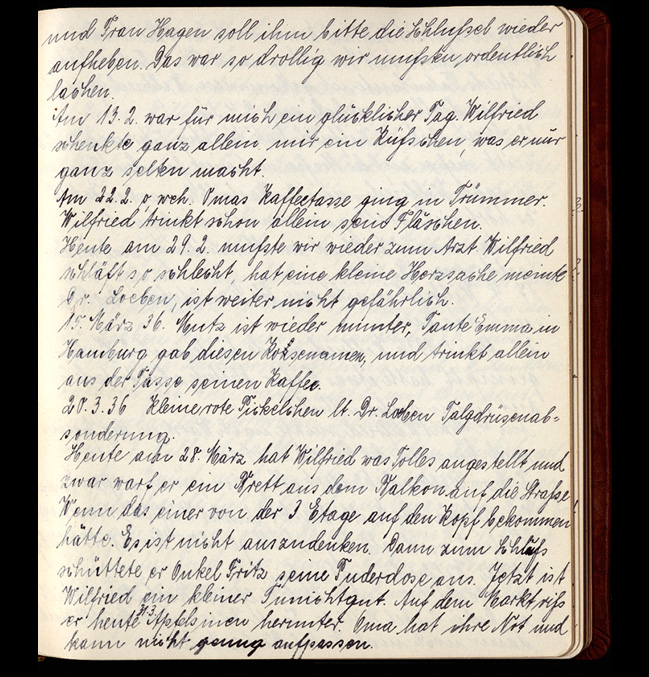 und Frau Hagen soll ihm bitte die Schlüssel wieder
aufheben. Das war so drollig wir mußten ordentlich
lachen
Am 13.2. war für mich ein glücklicher Tag. Wilfried
schenkte ganz allein mir ein Küßchen, was er nur
ganz selten macht.
Am 22.2. o weh. Omas Kaffeetasse ging in Trümmer.
Wilfried trinkt schon allein sein Fläschen.
Heute am 29.2. mußte wir wieder zum Arzt Wilfried
schläft so schlecht, hat eine kleine Herzsache meinte
Dr. Loeben, ist weiter nicht gefährlich.
15. März 36. Mutz ist wieder munter, Tante Emma in
Hamburg gab diesen Kosenamen, und trinkt allein
aus der Tasse seinen Kaffee.
20.3.36 Kleine rote Pickelchen lt. Dr. Loeben Talgdrüsenab-
sonderung.
Heute am 28. März hat Wilfried was Tolles angestellt und
zwar warf er ein Brett aus dem Balkon auf die Straße,
Wenn das einer von der 3 Etage auf den Kopf bekommen
hätte. Es ist nicht auszudenken. Dann zum Schluß
schüttete er Onkel Fritz seine Puderdose aus. Jetzt ist
Wilfried ein kleiner Tunichtgut. Auf dem Markt riß
er heute Apfelsinen herunter. Oma hat ihre Not und
kann nicht genug aufpassen.